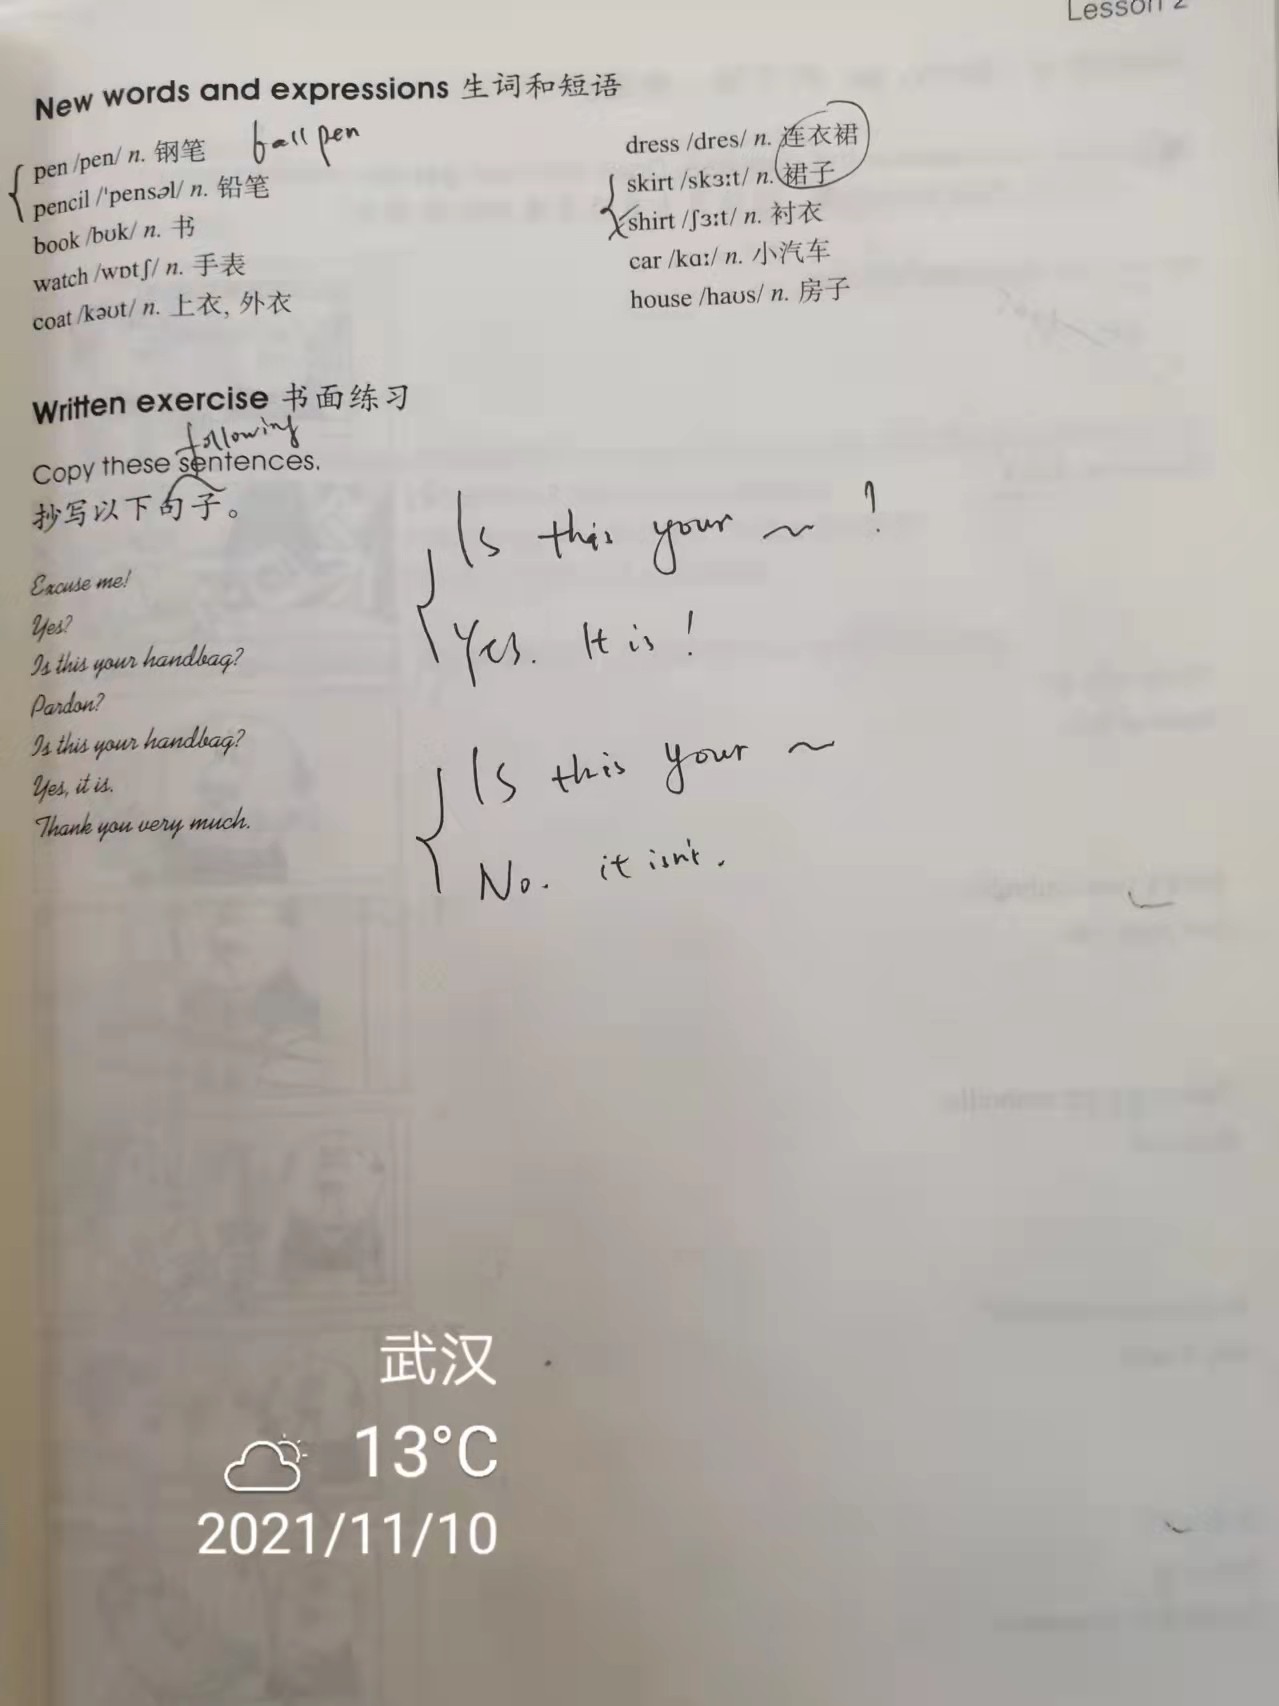 Lesson 2
New words and expressions 生词和短语
pen /pen/ n. 钢笔 ball pen
pencil /'pensəl/ n. 铅笔
book /bʊk/ n. 书
watch /wɒtʃ/ n. 手表
coat /kəʊt/ n. 上衣, 外衣
dress /dres/ n. 连衣裙
skirt /skɜːt/ n. 裙子
shirt /ʃɜːt/ n. 衬衣
car /kɑː/ n. 小汽车
house /haʊs/ n. 房子
Written exercise 书面练习
following
Copy these sentences.
抄写以下句子。
Excuse me!
Yes?
Is this your handbag?
Pardon?
Is this your handbag?
Yes, it is.
Thank you very much.
Is this your ~ ?
Yes. It is!
Is this your ~
No. it isn't.
武汉
13°C
2021/11/10